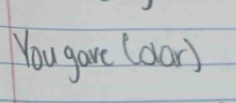 You gave (dar)